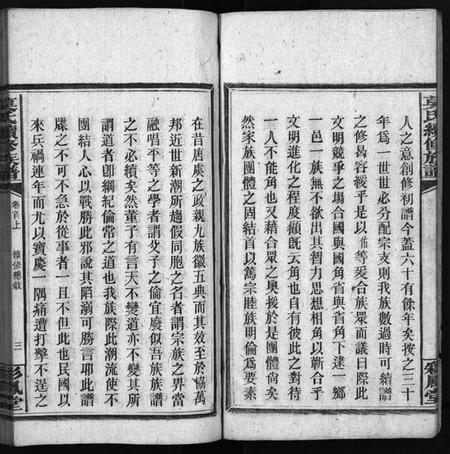 人之意創修初譜今蓋六十有餘年矣按之三十
年爲一世世必分配宗支則我族數過時可續譜
之修曷容緩乎是以籌萃合族眾而議曰際此
文明競爭之場合國與國角省與省角下逮一鄉
一邑一族無不欲出其智力思想相角以蘄合乎
文明進化之程度顧旣云角也自有彼此之對待
一人不能角也又藉合眾之奧援於是團體尙矣
然家族團體之固結首以篤宗睦族明倫爲要素
莫氏續修族譜
彩鳳堂
在昔唐虞之政親九族徽五典而其效至於協萬
邦近世新潮所趨假同胞之名者謂宗族之界當
融唱平等之學者謂父子之倫宜廢似吾族族譜
之不必續矣然董子有言天不變道亦不變其所
謂道者卽綱紀倫常之道也我族際此潮流使不
團結人心以戰勝此邪說其陷溺可勝言耶此譜
牒之不可不急於從事者一且不但此也民國以
來兵禍連年而尤以寶慶一隅痛遭打擊不逞之
莫氏續修族譜
卷首上
續修總敘
三
彩鳳堂